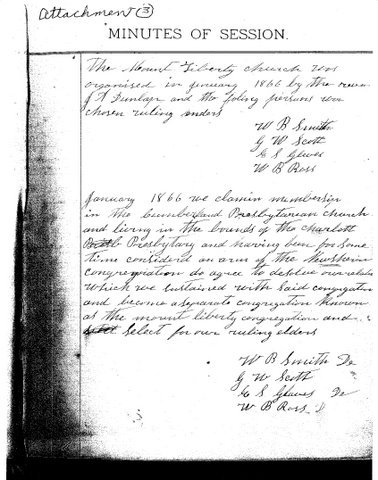 Attachment (3)
MINUTES OF SESSION.
The Mount Liberty church was
organised in January 1866 by the revrn
J A Dunlap and the foling persons was
chosen ruling enders
W B Smith
G W Scott
C S Glaves
W B Ross
January 1866 we clamin membership
in the Cumberland Presbytarean church
and living in the bounds of the charlott
Presbytary and having been for some
time considerd an arm of the
congregation do agree to desolve our relation
which we sustained with said congregation
and become a separate congregation Known
as the mount liberty congregation and
Select for our ruling elders
W B Smith De
G W Scott
C S Glaves De
W B Ross